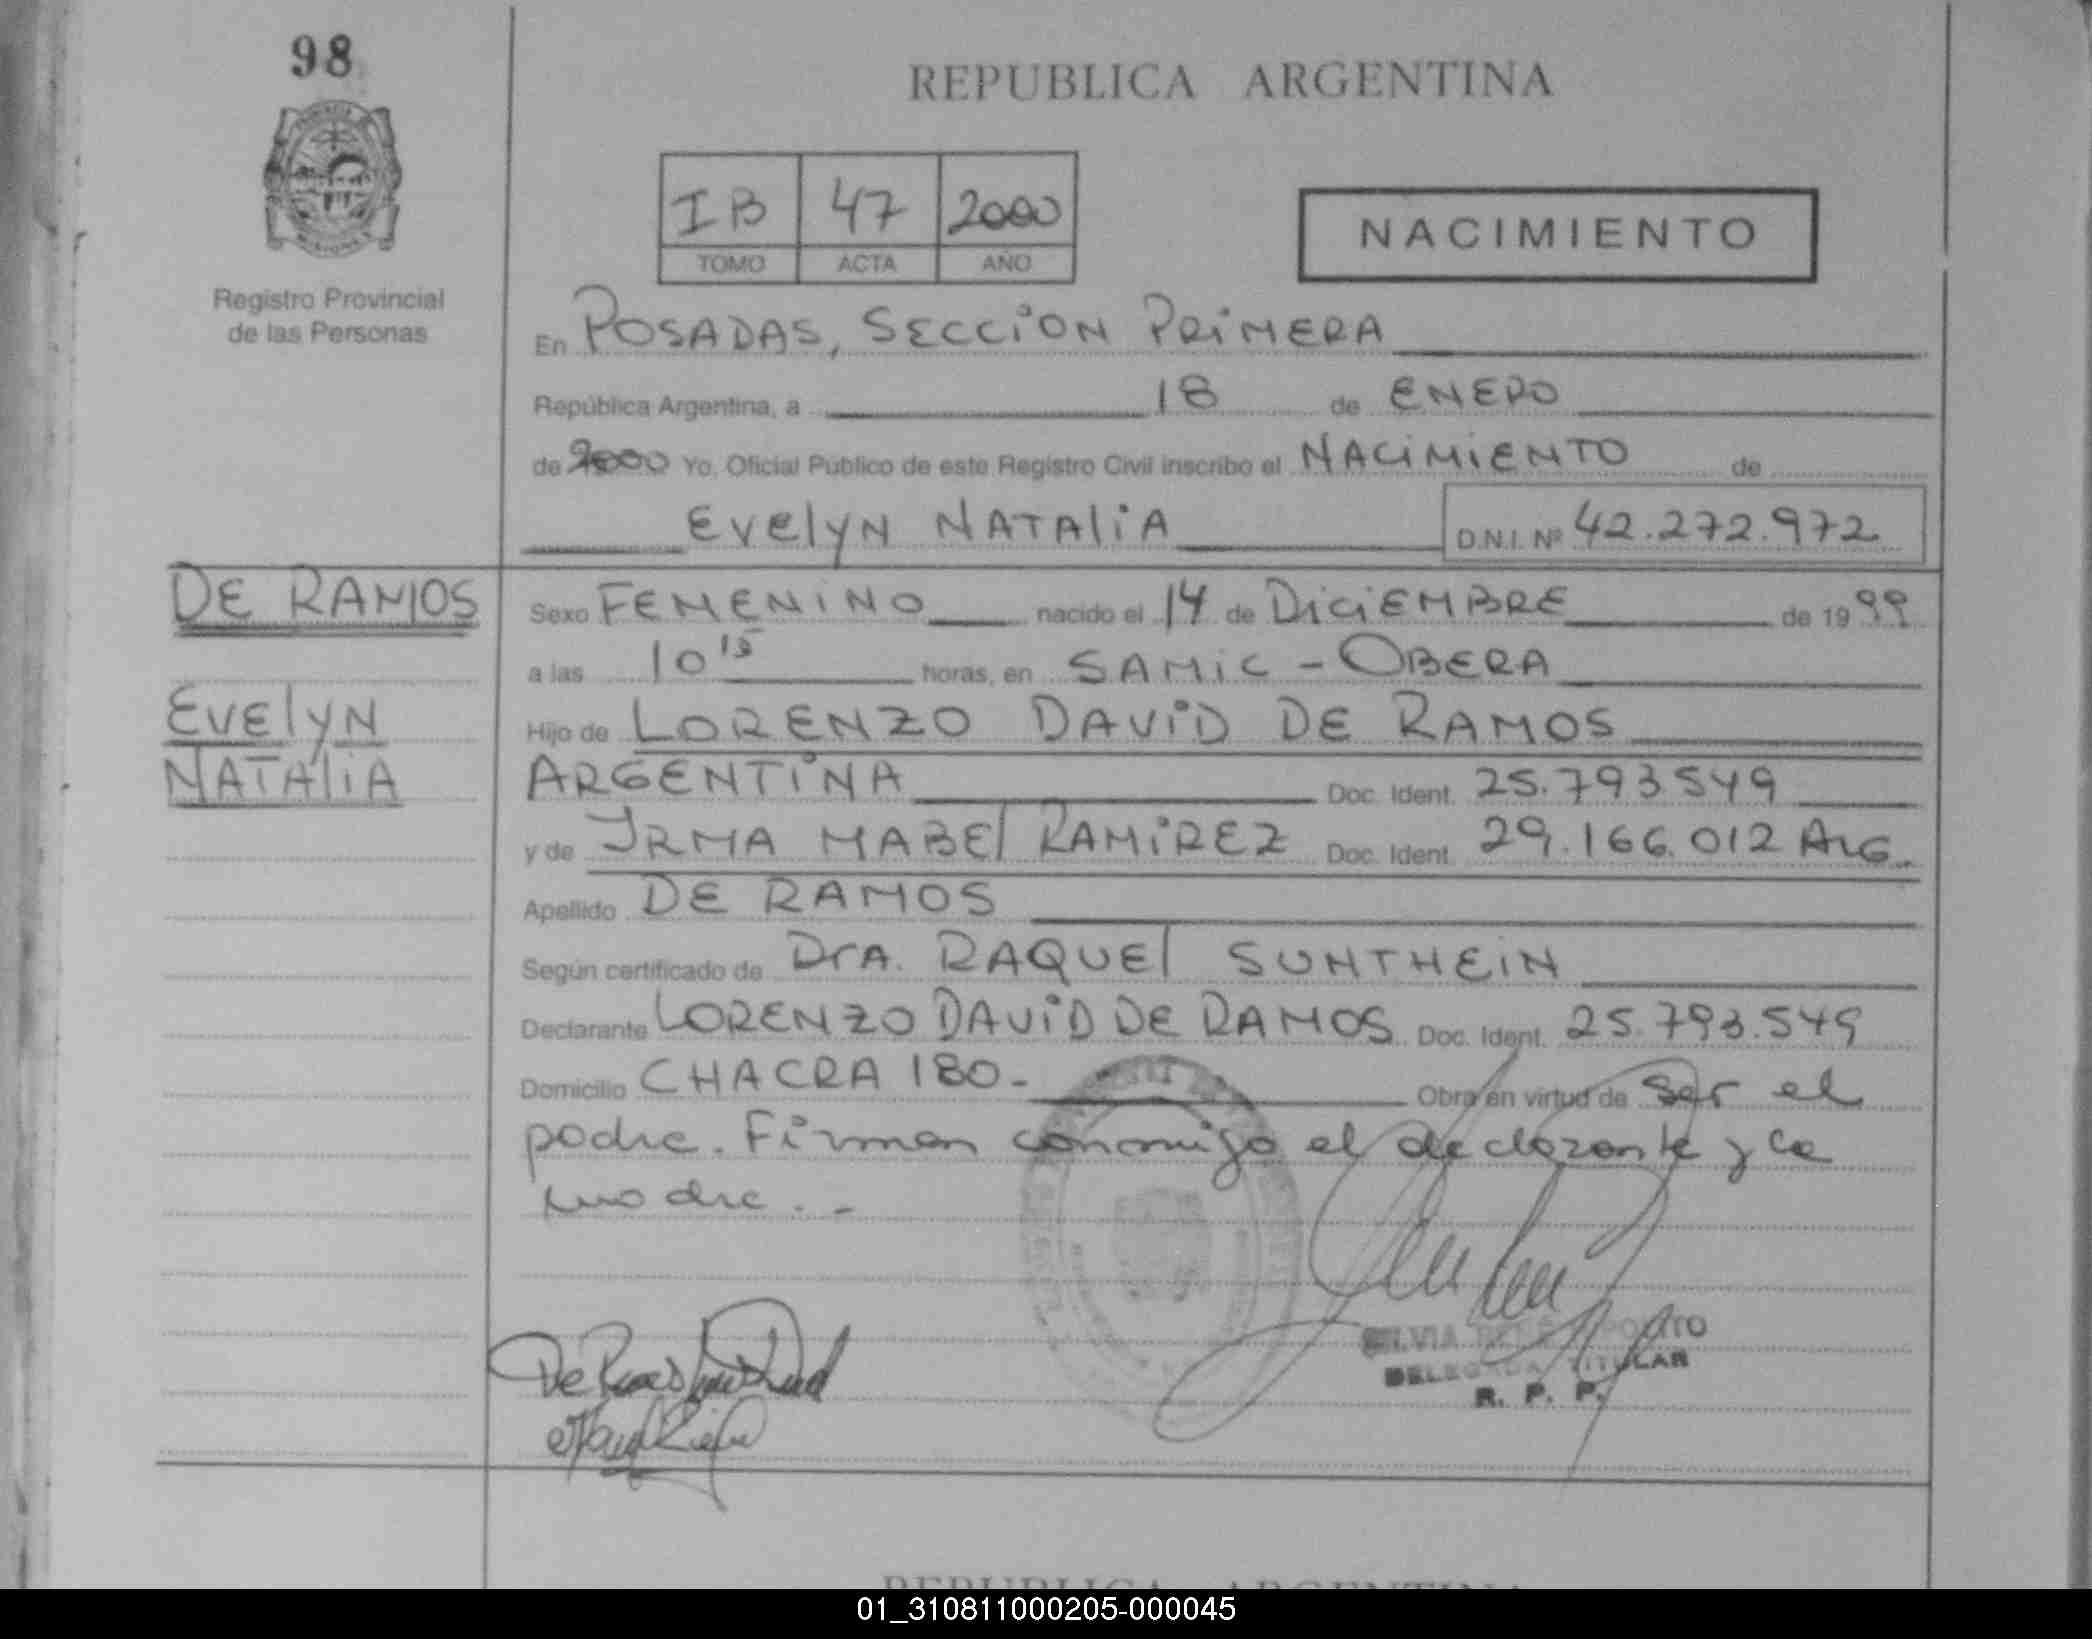 98
REPUBLICA ARGENTINA
IB 47 2000
TOMO ACTA AÑO
NACIMIENTO
Registro Provincial
de las Personas
En POSADAS, SECCION PRIMERA
República Argentina, a 18 de ENERO
de 2000 Yo, Oficial Público de este Registro Civil inscribo el NACIMIENTO de
EVElYN NATAliA D.N.I. Nº 42.272.972
DE RAMOS
EVElYN
NATAliA
Sexo FEMENINO nacido el 14 de DICIEMBRE de 1999
a las 10 15 horas, en SAMIC - OBERA
Hijo de LORENZO DAVID DE RAMOS
ARGENTINA Doc. Ident. 25.793.549
y de IRMA MABEl RAMIREZ Doc. Ident. 29.166.012 ARG.
Apellido DE RAMOS
Según certificado de DrA. RAQUEl SUNTHEIN
Declarante LORENZO DAVID DE RAMOS Doc. Ident. 25.793.549
Domicilio CHACRA 180.- Obra en virtud de ser el
padre. Firman conmigo el declarante y la
madre. . -
SILVIA
DELEGADA TITULAR
R. P. P.
REPUBLICA ARGENTINA
01_310811000205-000045